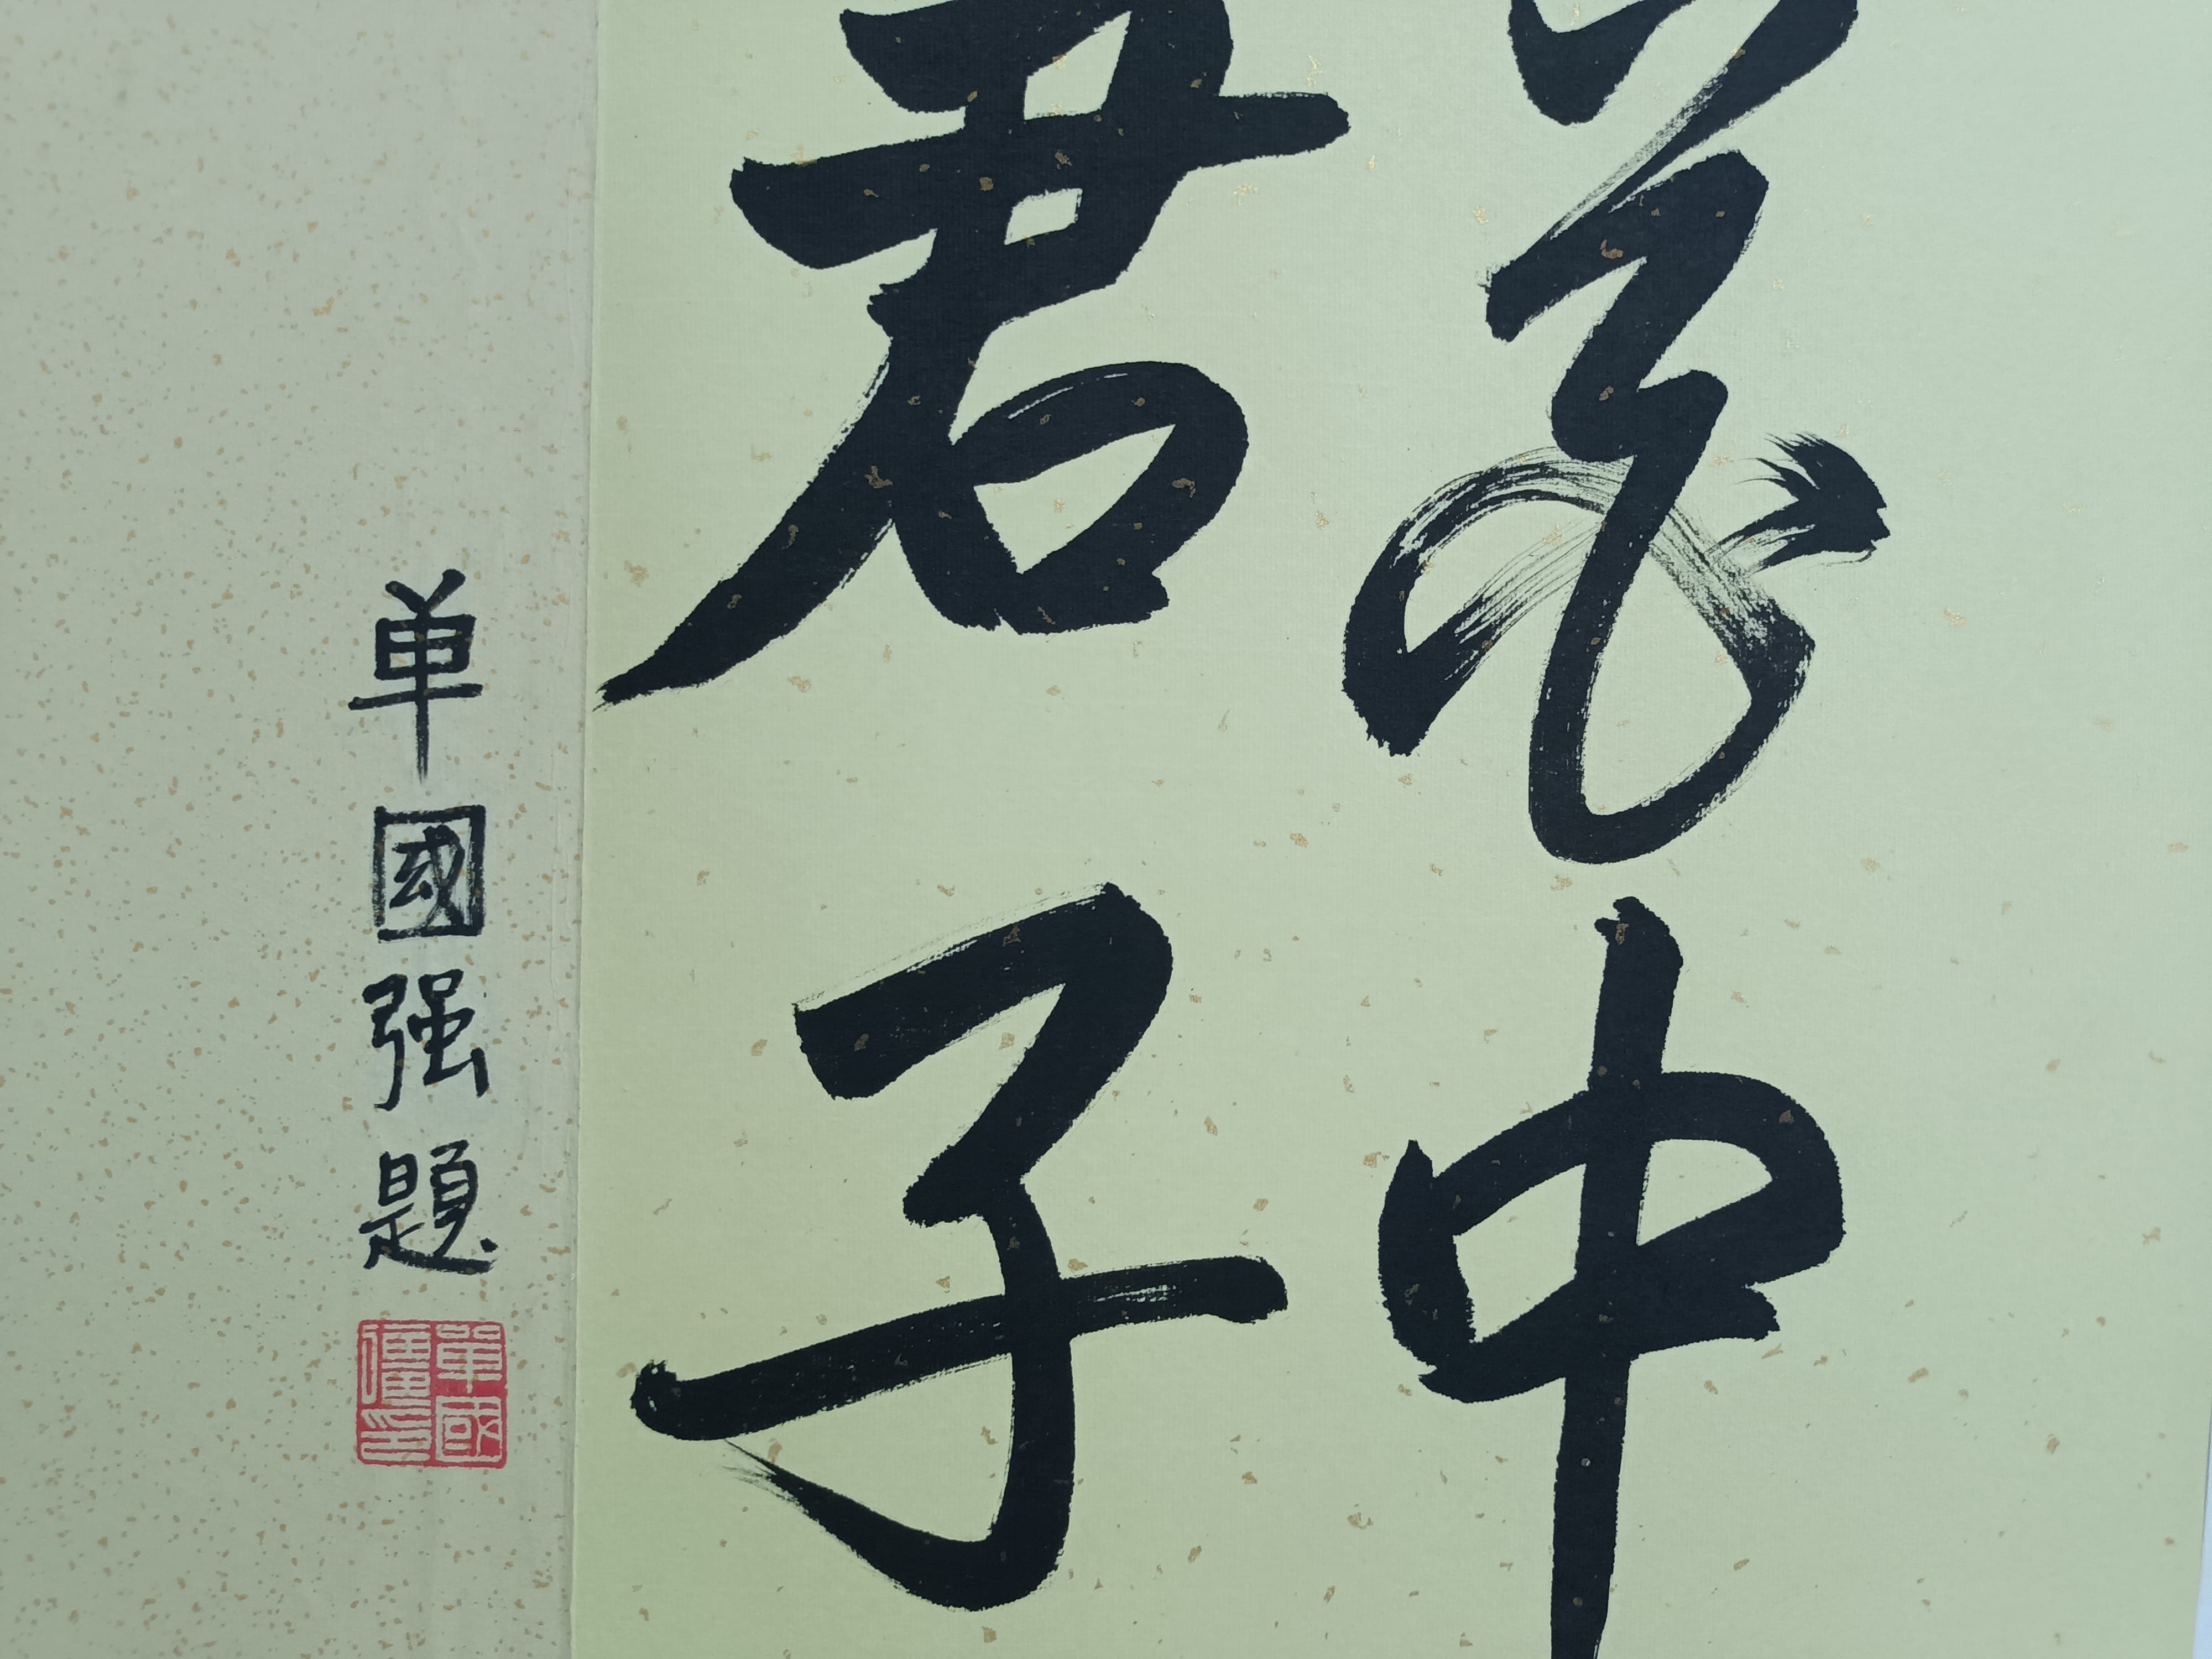 花中
君子
单國强題
單國彊印